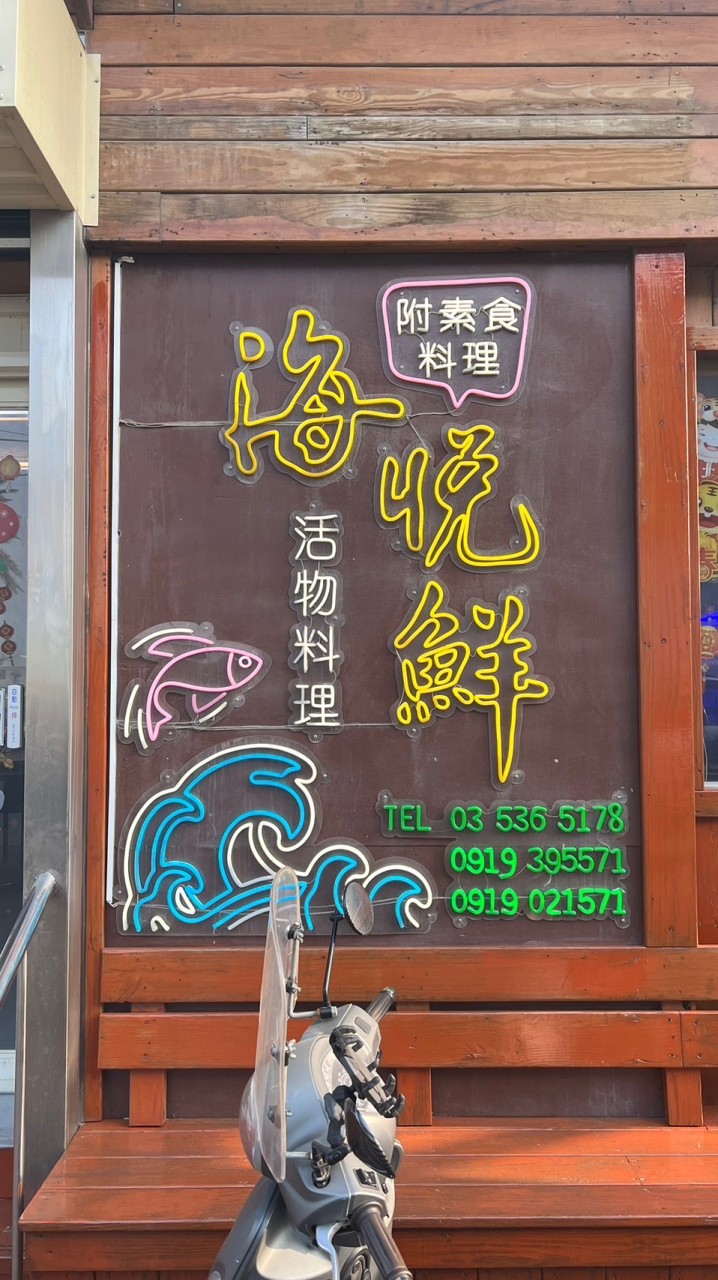 附素食
料理
海悅鮮
活物料理
TEL 03 536 5178
0919 395571
0919 021571